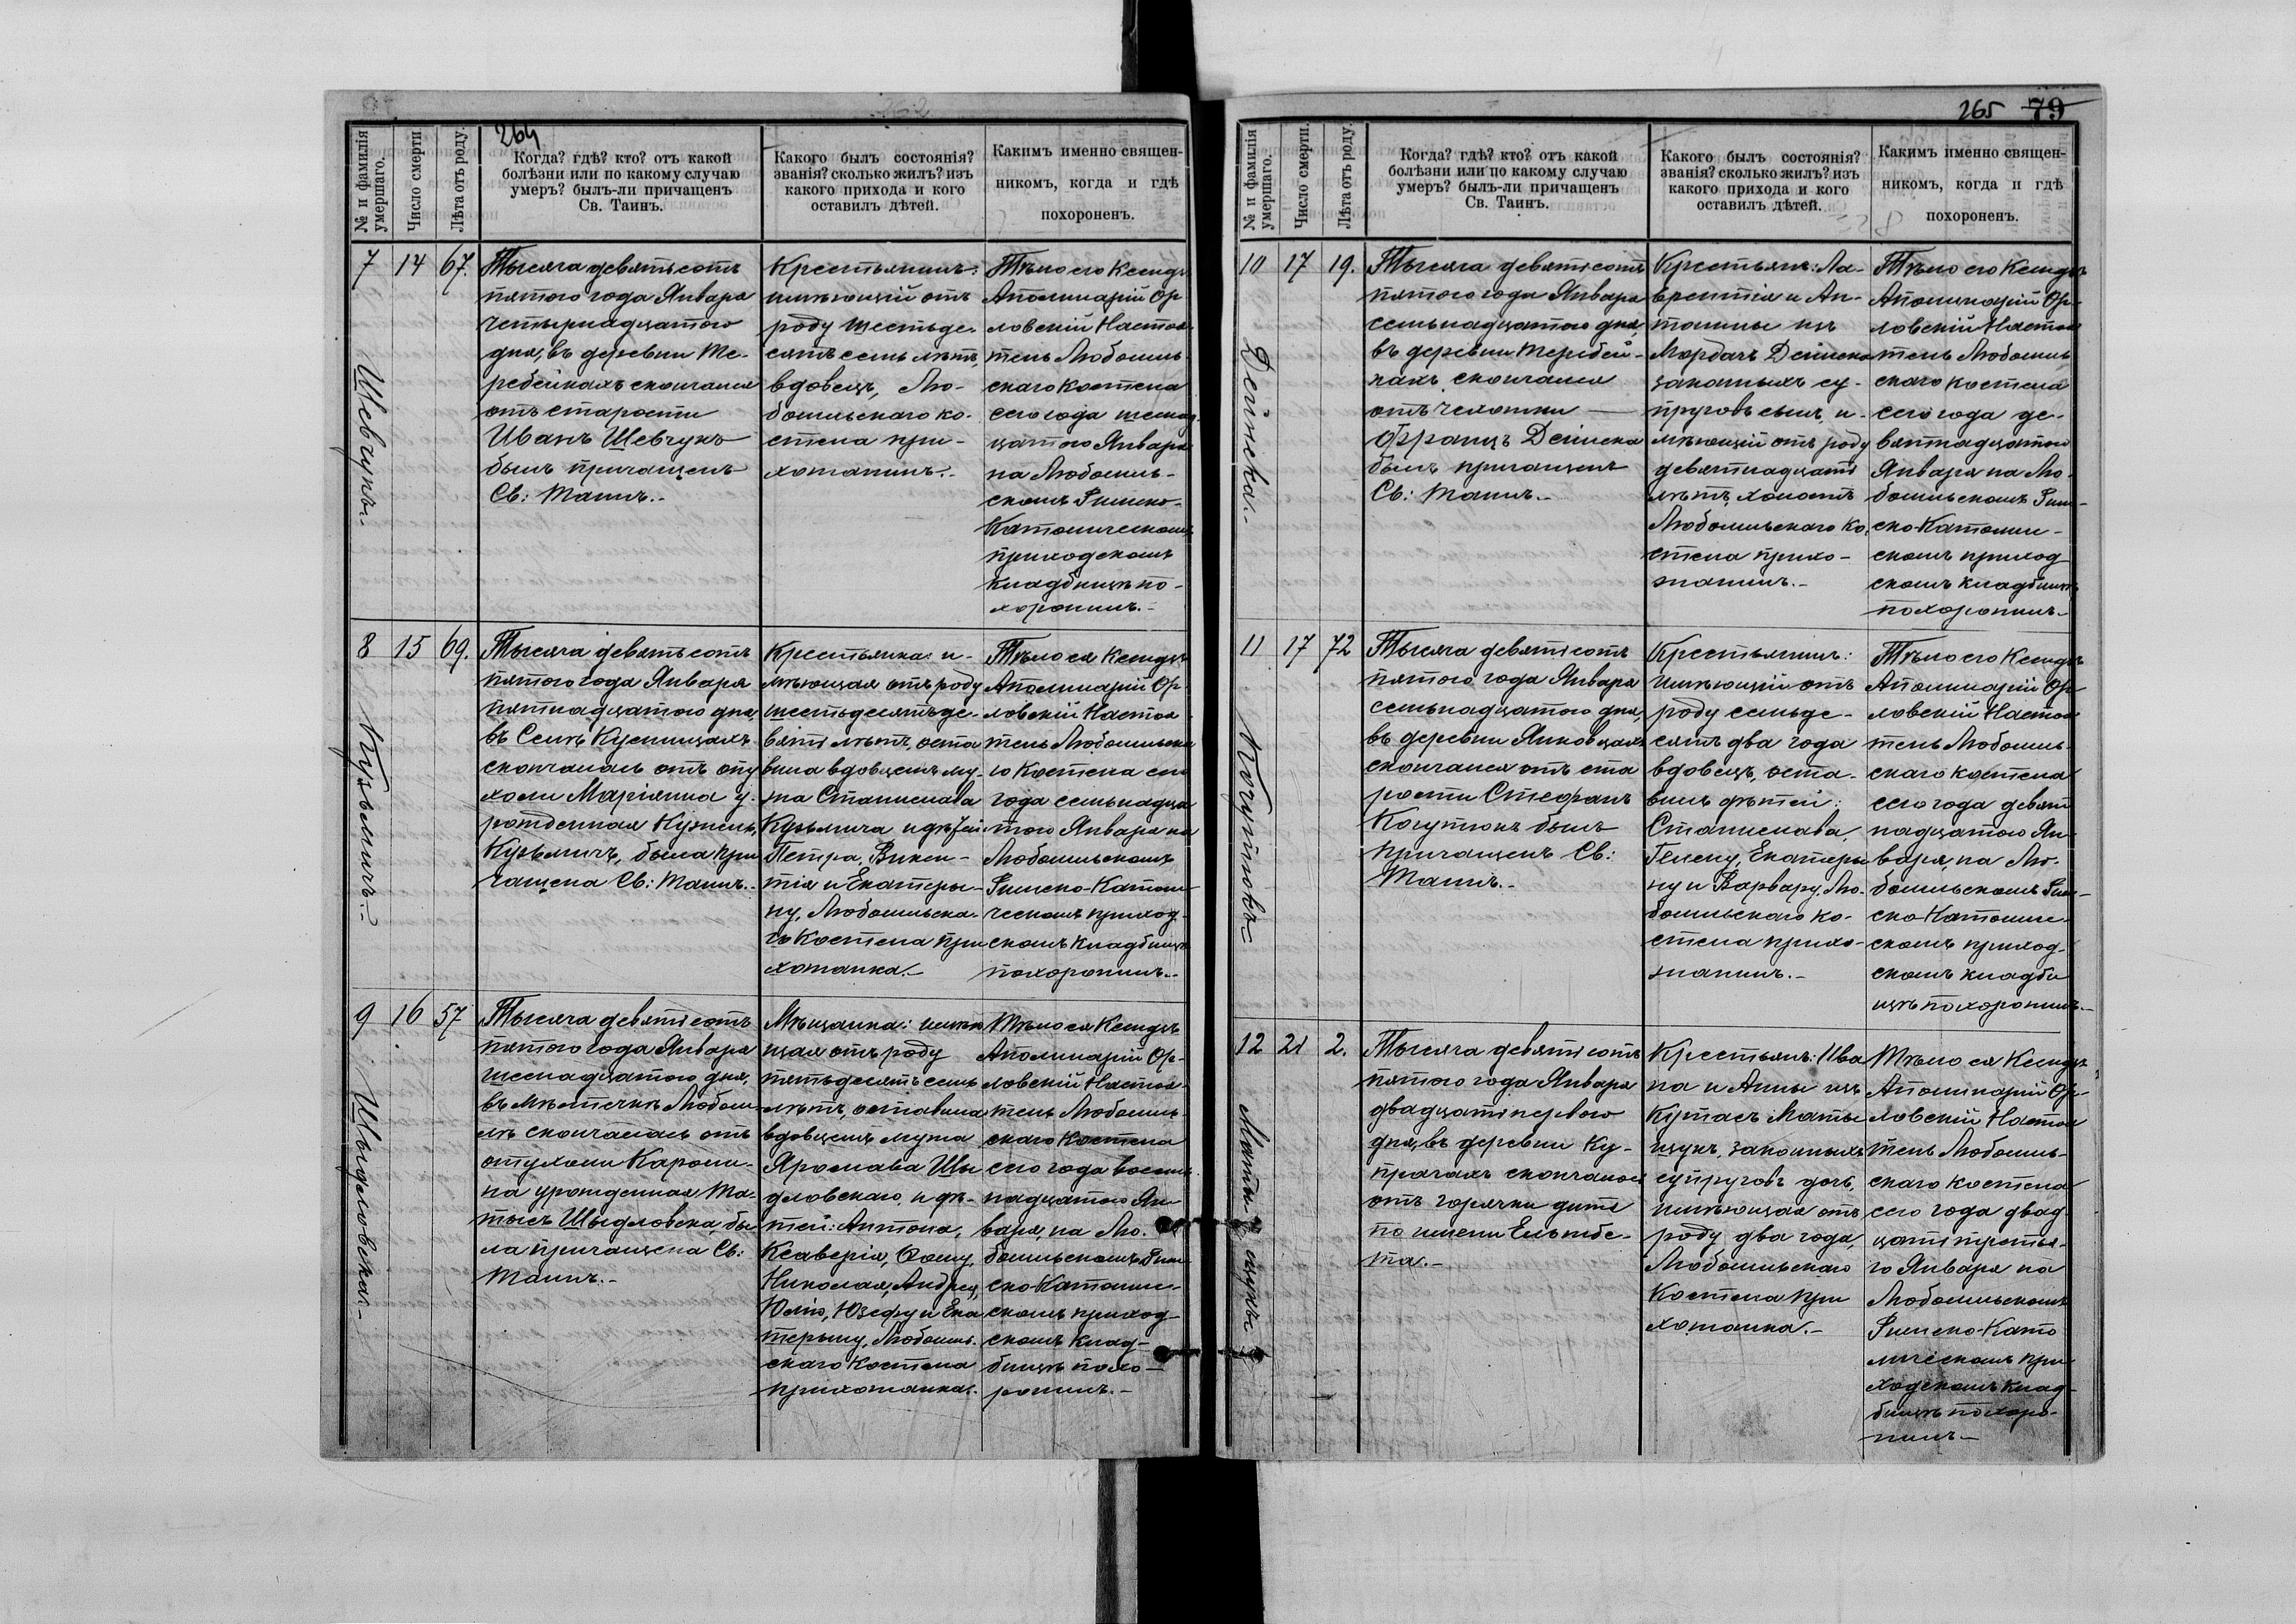 264
№ и фамилія умершаго.
Число смерти
Лѣта отъ роду.
Когда? гдѣ? кто? отъ какой
болѣзни или по какому случаю
умеръ? былъ-ли причащенъ
Св. Таинъ.
Какого былъ состоянія?
званія? сколько жилъ? изъ
какого прихода и кого
оставилъ дѣтей.
Какимъ именно священ-
никомъ, когда и гдѣ
похороненъ.
7
14
67.
Шевчукъ.-
Тысяча девятьсотъ
пятого года Января
четырнадцатого
дня, въ деревни Те-
ребейкахъ скончался
отъ старости
Иванъ Шевчукъ
былъ причащенъ
Св: Таинъ.-
Крестьянинъ:
имѣющій отъ
роду шестьде-
сятъ семь лѣтъ,
вдовецъ, Лю-
бомльскаго ко-
стела при-
хожанинъ.-
Тѣло его Ксендзъ
Аполинарій Ор
ловскій Настоя
тель Любомль-
скаго Костела
сего года шестнад
цатого Января
на Любомль-
скомъ Римско-
Католическомъ
приходскомъ
кладбищѣ по-
хоронилъ.-
8
15
69.
Кузьмичъ.-
Тысяча девятьсотъ
пятого года Января
пятнадцатого дня,
въ Селѣ Куснищахъ
скончалась отъ опу
холи Маріянна у-
рожденная
Кузьмичъ, была при
чащена Св: Таинъ.-
Крестьянка: и-
мѣющая отъ роду
шестьдесятъ де-
вять лѣтъ, оста
вила вдовцемъ му-
жа Станислава
Кузьмича и дѣтей
Петра, Викен-
тія и Екатеры-
ну, Любомльска-
го Костела при
хожанка.-
Тѣло ея Ксендзъ
Аполинарій Ор-
ловскій Настоя
тель Любомльска
го Костела сего
года семьнадца
того Января на
Любомльскомъ
Римско-Католи
ческомъ приход-
скомъ кладбищѣ
похоронилъ.-
9
16
57
Шыдловская.-
Тысяча девятьсотъ
пятого года Января
шеснадцатого дня,
въ мѣстечкѣ Любом-
лѣ скончалась отъ
опухоли Кароли-
на урожденная Ма-
тысъ Шыдловска, бы
ла причащена Св:
Таинъ.-
Мѣщанка: имѣю
щая отъ роду
пятьдесятъ семь
лѣтъ, оставила
вдовцемъ мужа
Ярослава Шы
дловскаго, и дѣ-
тей: Антона,
Ксаверія, Ѳому,
Николая, Андрея,
Юлію, Юзефу и Ека
терыну, Любомль-
скаго Костела
прихожанка.-
Тѣло ея Ксендзъ
Аполинарій Ор-
ловскій Настоя-
тель Любомль-
скаго Костела
сего года восемь
надцатого Ян
варя, на Лю-
бомльскомъ Рим
ско-Католиче-
скомъ приход-
скомъ клад-
бищѣ похо-
ронилъ.-
265 79
№ и фамилія умершаго.
Число смерти.
Лѣта отъ роду.
Когда? гдѣ? кто? отъ какой
болѣзни или по какому случаю
умеръ? былъ-ли причащенъ
Св. Таинъ.
Какого былъ состоянія?
званія? сколько жилъ? изъ
какого прихода и кого
оставилъ дѣтей.
Какимъ именно священ-
никомъ, когда и гдѣ
похороненъ.
10
17
19.
Дейнека.-
Тысяча девятьсотъ
пятого года Января
семьнадцатого дня
въ деревни Теребей-
кахъ скончался
отъ чахотки
Францъ Дейнека
былъ причащенъ
Св: Таинъ.-
Крестьянъ: Ла-
врентія и Ан-
тонины изъ
Дейнека
законныхъ су-
пруговъ сынъ, и-
мѣющій отъ роду
девятнадцать
лѣтъ, холостъ
Любомльскаго Ко-
стела прихо-
жанинъ.-
Тѣло его Ксендзъ
Аполинарій Ор-
ловскій Настоя
тель Любомль
скаго костела
сего года де-
вятнадцатого
Января на Лю-
бомльскомъ Рим-
ско-Католиче-
скомъ приход
скомъ кладбищѣ
похоронилъ.-
11
17
72
Когутюкъ
Тысяча девятьсотъ
пятого года Января
семьнадцатого дня,
въ деревни Янковцахъ
скончался отъ ста
рости Стефанъ
Когутюкъ былъ
причащенъ Св:
Таинъ.-
Крестьянинъ:
имѣющій отъ
роду семьде-
сятъ два года
вдовецъ, оста-
вилъ дѣтей:
Станислава,
Гелену, Екатеры
ну и Варвару, Лю-
бомльскаго ко-
стела прихо-
жанинъ.-
Тѣло его Ксендзъ
Аполинарій Ор
ловскій Настоя
тель Любомль-
скаго костела
сего года девят
надцатого Ян-
варя, на Лю-
бомльскомъ Рим-
ско-Католиче-
скомъ приход-
скомъ кладби
щѣ похоронилъ.-
12
21
2.
Матыщукъ
Тысяча девятьсотъ
пятого года Января
двадцать первого
дня, въ деревни Ку-
прачахъ скончалось
отъ горячки дитя
по имени Ельжбе-
та.-
Крестьянъ: Ива
на и Анны изъ
Маты
щукъ, законныхъ
супруговъ дочь,
имѣющая отъ
роду два года,
Любомльскаго
Костела при
хожанка.-
Тѣло ея Ксендзъ
Аполинарій Ор-
ловскій Настоя
тель Любомль-
скаго костела
сего года двад-
цать третья-
го Января на
Любомльскомъ
Римско-Като
лическомъ при
ходскомъ клад-
бищѣ похоро-
нилъ.-